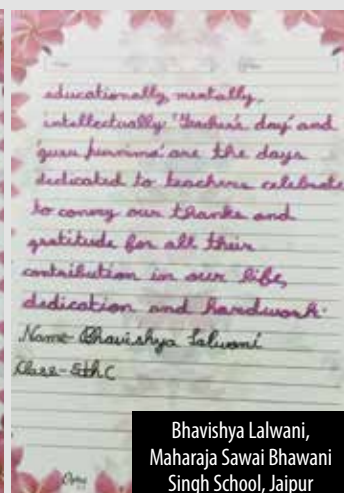 educationally, mentally,
intellectually. 'Teacher's day' and
'guru purnima' are the days
dedicated to teachers celebrate
to convey our thanks and
gratitude for all their
contribution in our life,
dedication and hardwork.
Name- Bhavishya Lalwani
Class- 8th C
Bhavishya Lalwani,
Maharaja Sawai Bhawani
Singh School, Jaipur